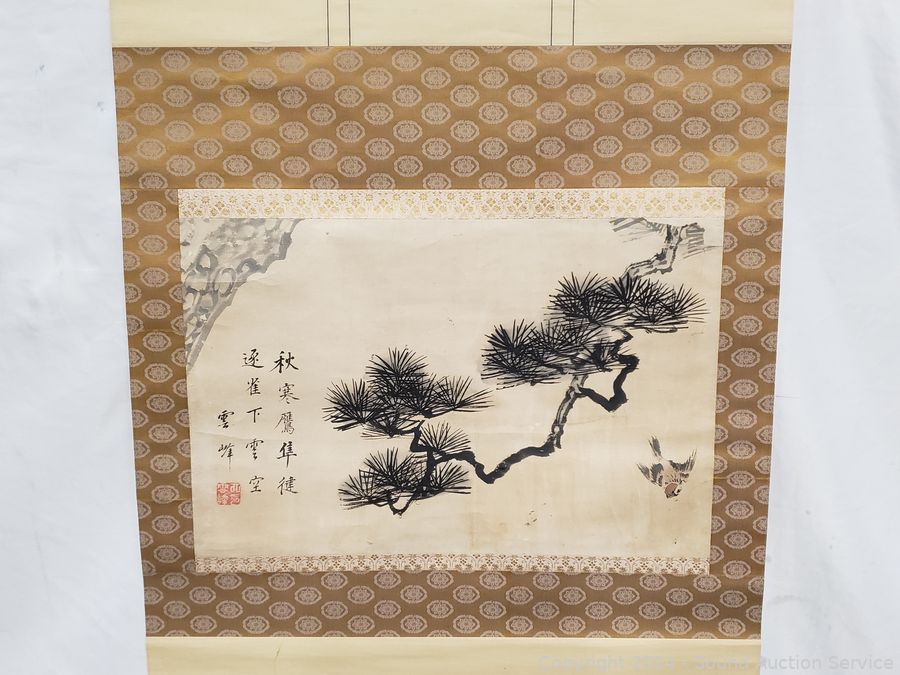 秋寒鷹隼健
逐雀下雲空
雲峰
Copyright 2024 - Sound Auction Service